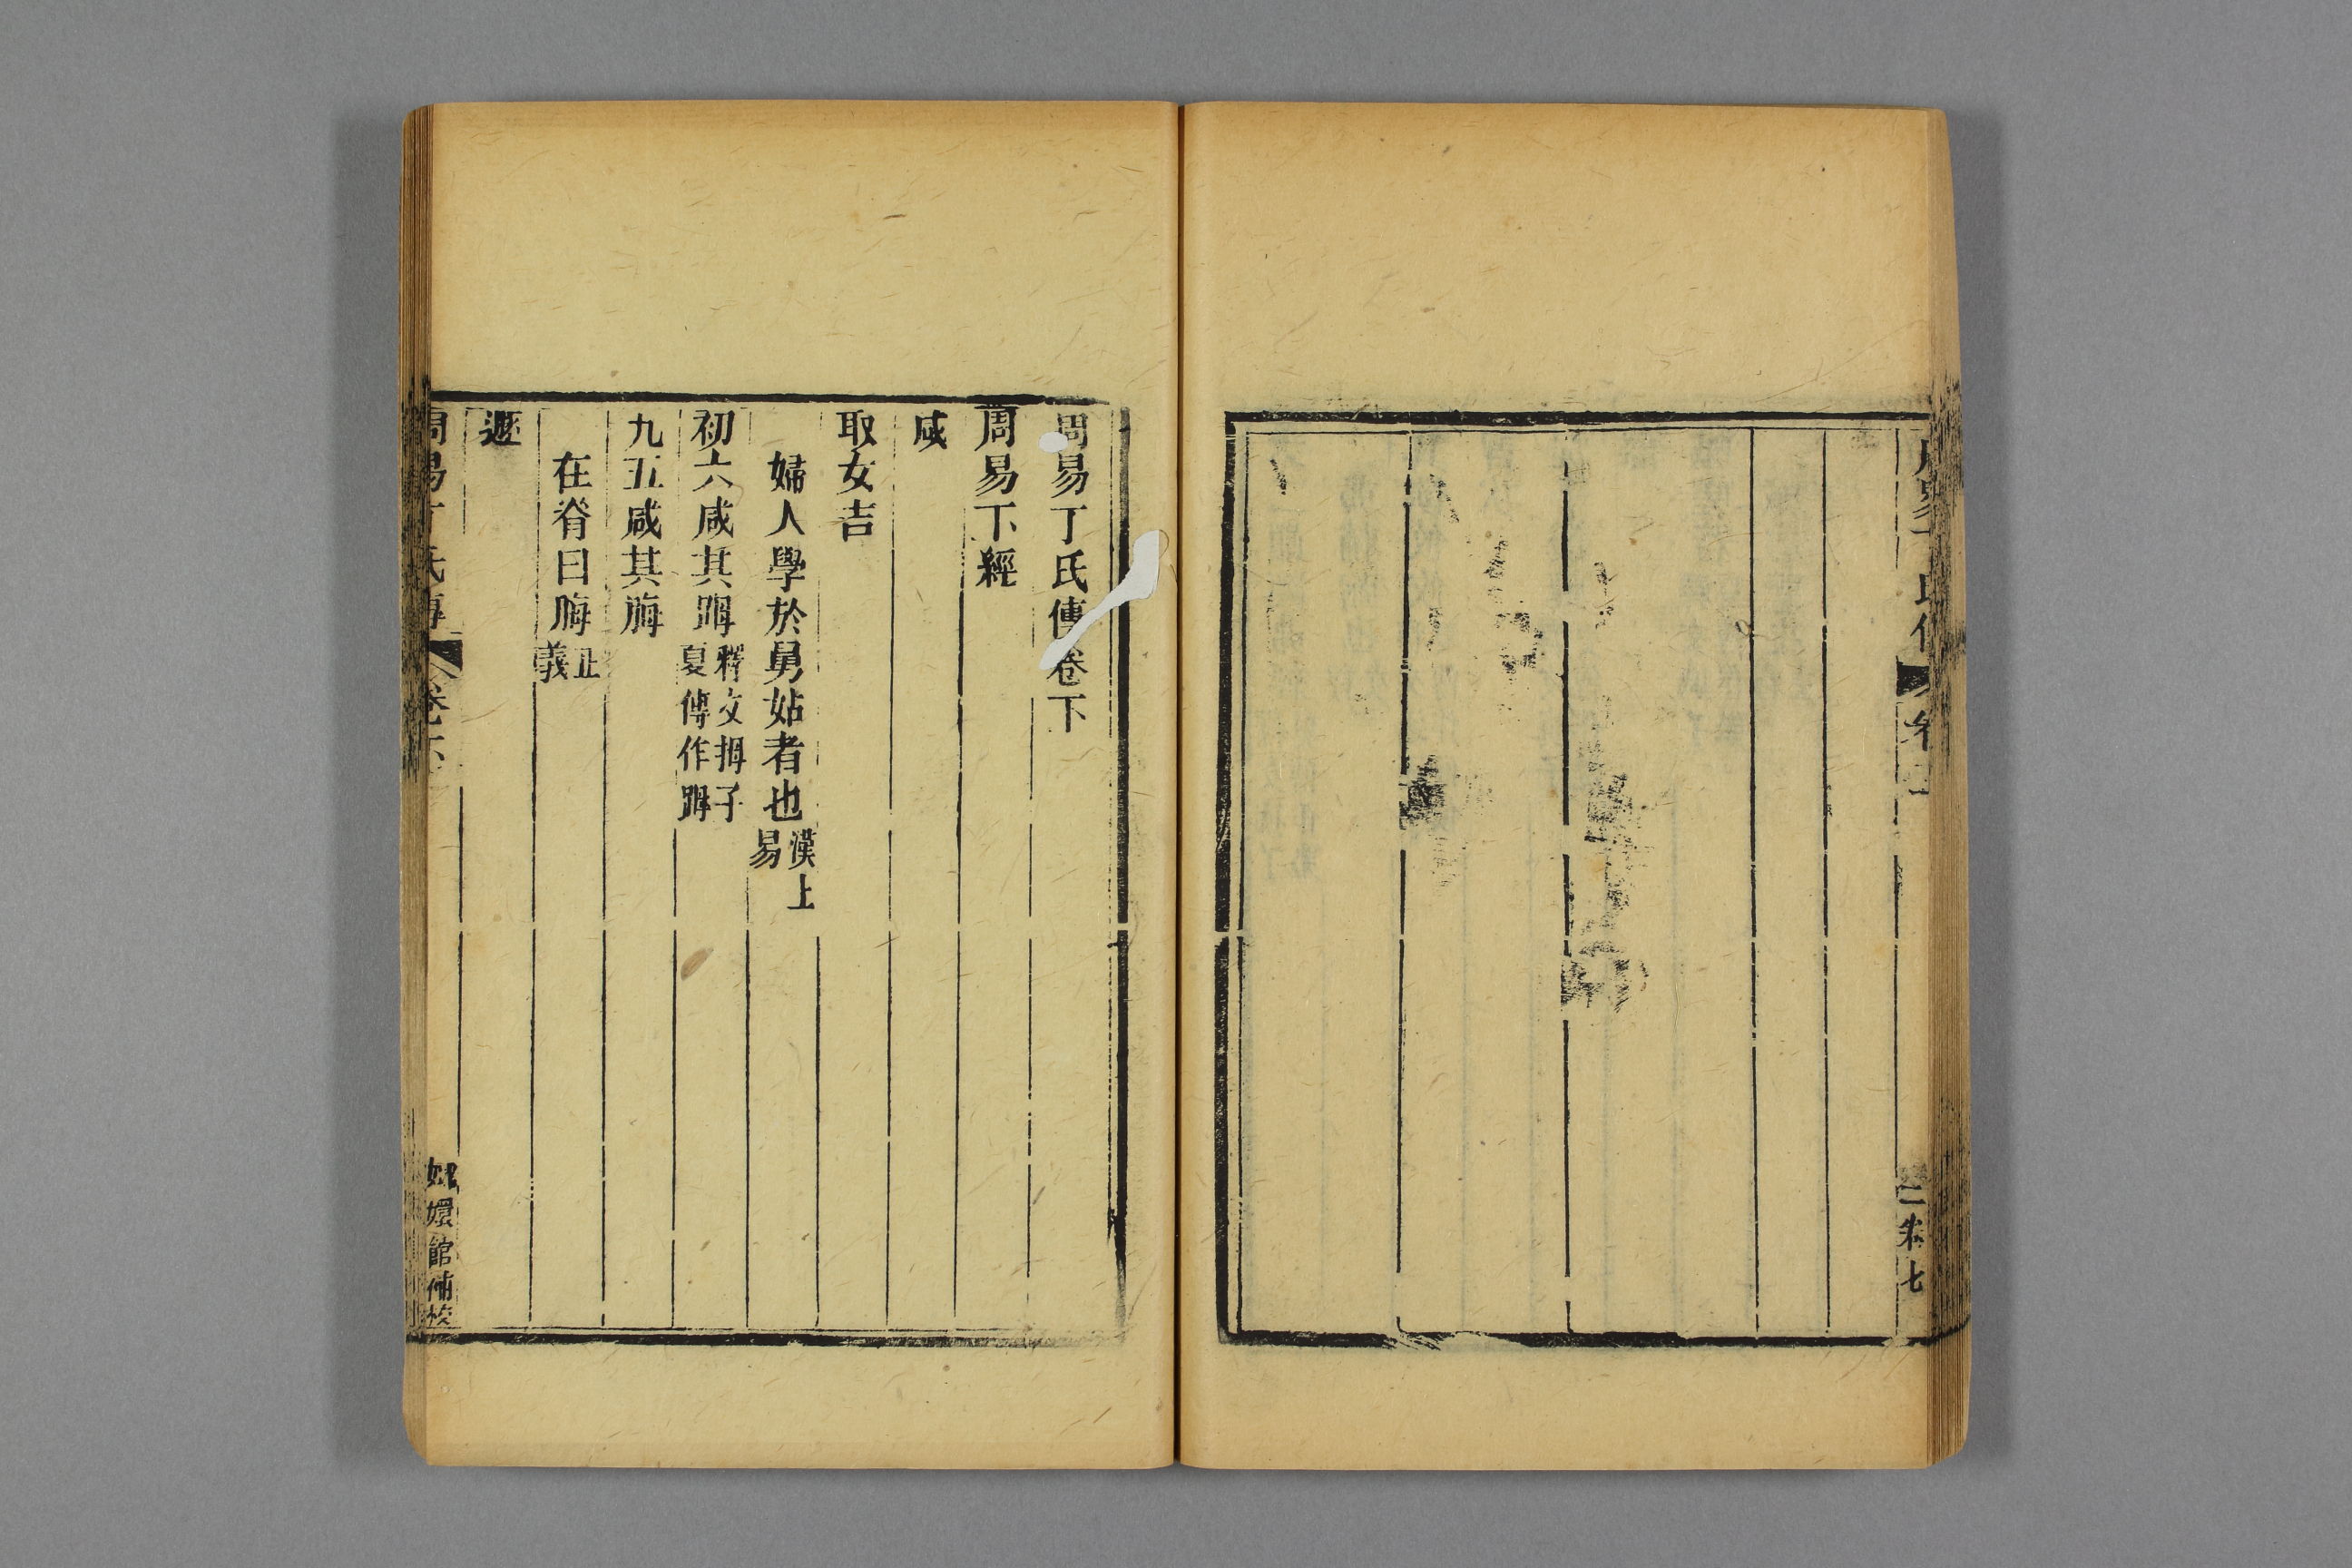 周易丁氏傳卷下
周易下經
咸
取女吉
婦人學於舅姑者也漢上易
初六咸其䠊釋文拇子夏傳作䠊
九五咸其脢
在脊曰脢正義
遯
周易丁氏傳 卷下
嫏嬛館補校